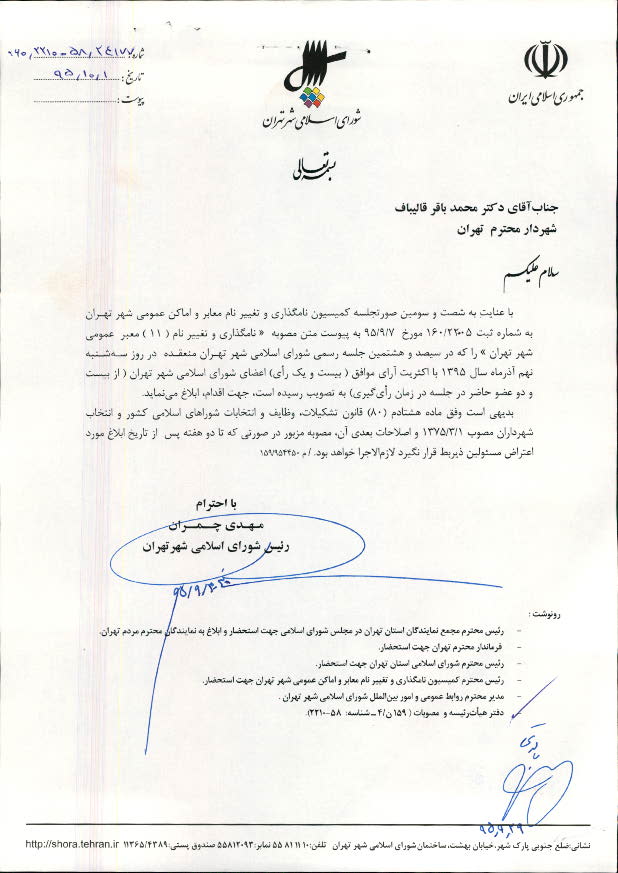 جمهوری اسلامی ایران
شورای اسلامی شهر تهران
شماره: ۱۶۰/۲۲۱۰-۵۸/۲۴۱۷۷
تاریخ: ۹۵/۱۰/۱
پیوست:
بسمه تعالی
جناب آقای دکتر محمد باقر قالیباف
شهردار محترم تهران
سلام علیکم
با عنایت به شصت و سومین صورتجلسه کمیسیون نامگذاری و تغییر نام معابر و اماکن عمومی شهر تهران
به شماره ثبت ۱۶۰/۲۲۰۰۵ مورخ ۹۵/۹/۷ به پیوست متن مصوبه « نامگذاری و تغییر نام ( ۱۱ ) معبر عمومی
شهر تهران » را که در سیصد و هشتمین جلسه رسمی شورای اسلامی شهر تهران منعقده در روز سه‌شنبه
نهم آذرماه سال ۱۳۹۵ با اکثریت آرای موافق ( بیست و یک رأی) اعضای شورای اسلامی شهر تهران ( از بیست
و دو عضو حاضر در جلسه در زمان رأی‌گیری) به تصویب رسیده است، جهت اقدام، ابلاغ می‌نماید.
بدیهی است وفق ماده هشتادم (۸۰) قانون تشکیلات، وظایف و انتخابات شوراهای اسلامی کشور و انتخاب
شهرداران مصوب ۱۳۷۵/۳/۱ و اصلاحات بعدی آن، مصوبه مزبور در صورتی که تا دو هفته پس از تاریخ ابلاغ مورد
اعتراض مسئولین ذیربط قرار نگیرد لازم‌الاجرا خواهد بود. / م ۱۵۹/۹۵۴۴۵۰
با احترام
مهدی چمران
رئیس شورای اسلامی شهر تهران
۹۵/۹/۳۰
رونوشت :
- رئیس محترم مجمع نمایندگان استان تهران در مجلس شورای اسلامی جهت استحضار و ابلاغ به نمایندگان محترم مردم تهران.
- فرماندار محترم تهران جهت استحضار.
- رئیس محترم شورای اسلامی استان تهران جهت استحضار.
- رئیس محترم کمیسیون نامگذاری و تغییر نام معابر و اماکن عمومی شهر تهران جهت استحضار.
- مدیر محترم روابط عمومی و امور بین‌الملل شورای اسلامی شهر تهران .
- دفتر هیأت‌رئیسه و مصوبات ( ۱۵۹ ن/۴ ـ شناسه: ۵۸-۲۲۱۰).
۹۵/۹/۲۹
نشانی:ضلع جنوبی پارک شهر،خیابان بهشت،ساختمان شورای اسلامی شهر تهران تلفن:۱۰ ۱۱ ۸۱ ۵۵ نمابر:۵۵۸۱۲۰۹۳ صندوق پستی:۱۱۳۶۵/۴۳۸۹ http://shora.tehran.ir